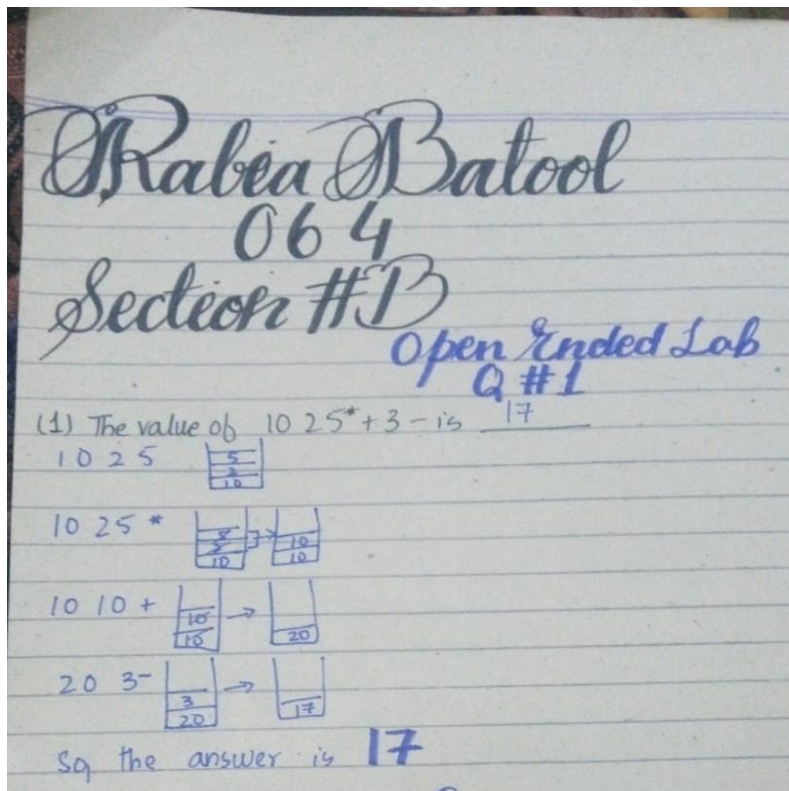 Rabia Batool
064
Section #B
Open Ended Lab
Q #1
(1) The value of 10 2 5 * + 3 - is 17
10 2 5
5
2
10
10 2 5 *
10
10
10
10 10 +
10
10
20
20 3 -
3
20
17
So the answer is 17